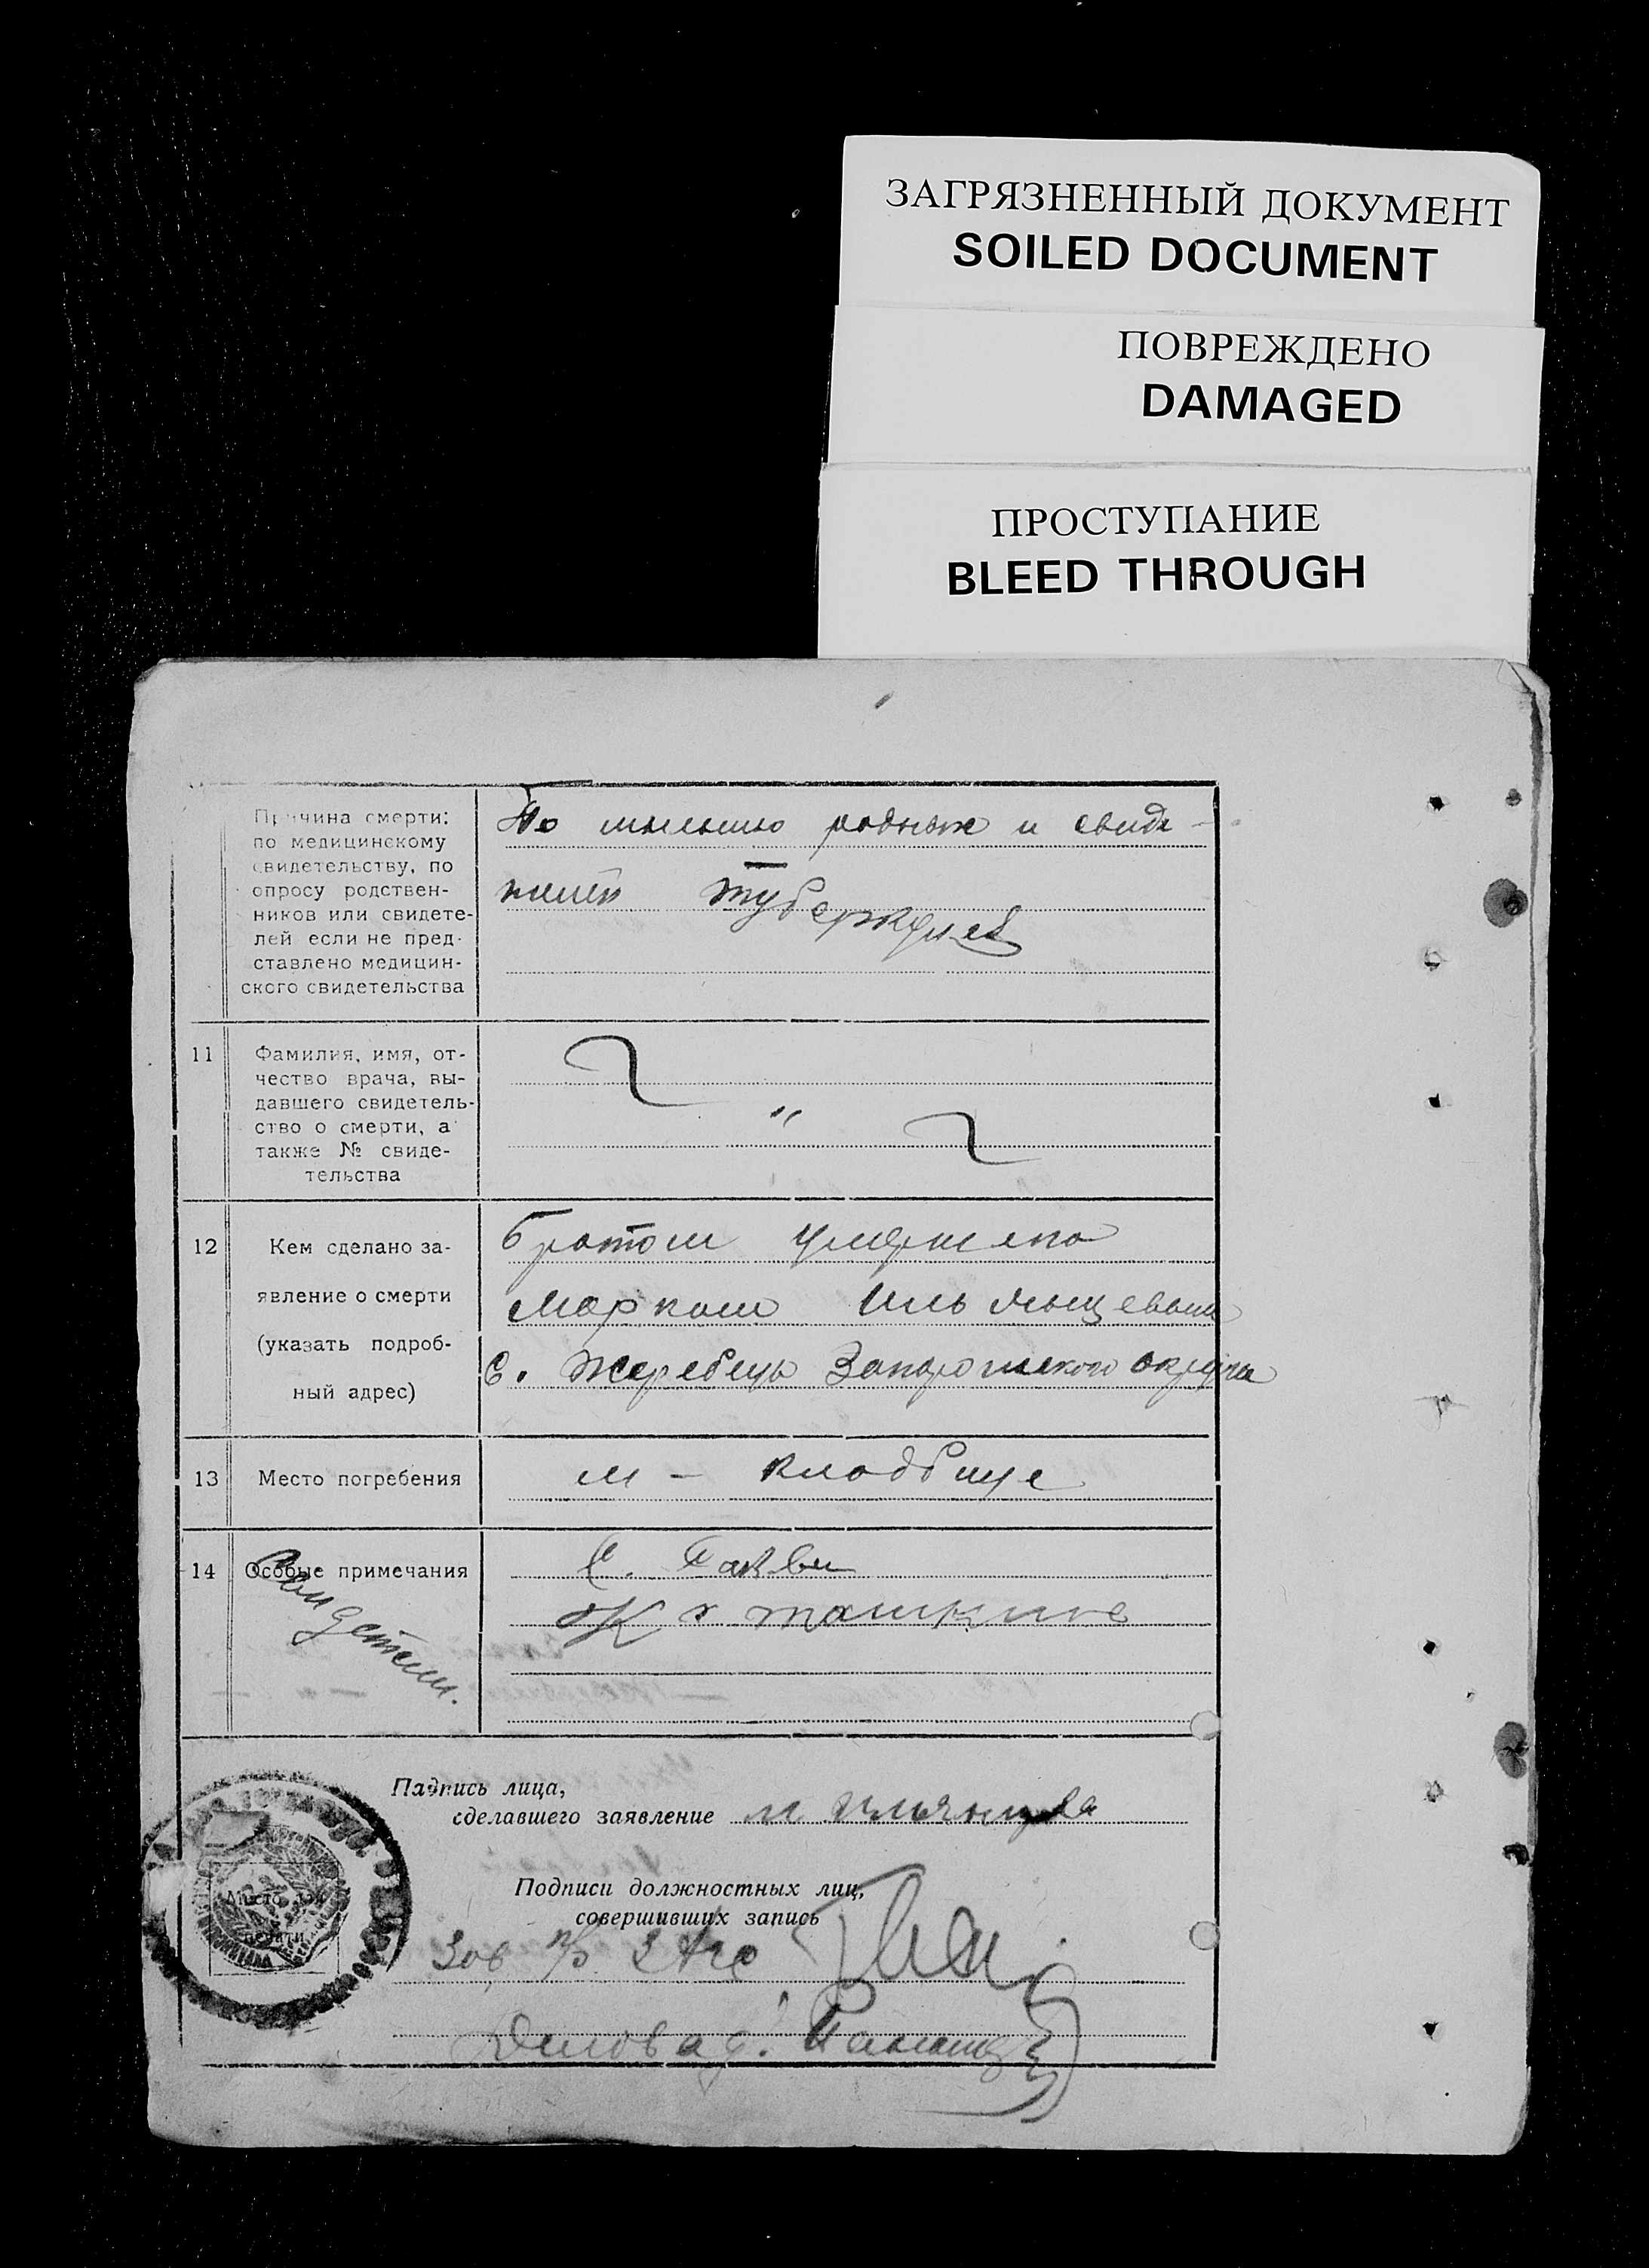 ЗАГРЯЗНЕННЫЙ ДОКУМЕНТ
SOILED DOCUMENT
ПОВРЕЖДЕНО
DAMAGED
ПРОСТУПАНИЕ
BLEED THROUGH
Причина смерти:
по медицинскому
свидетельству, по
опросу родствен-
ников или свидете-
лей если не пред-
ставлено медицин-
ского свидетельства
По мнению родных и свиде-
телей туберкулез
11
Фамилия, имя, от-
чество врача, вы-
давшего свидетель-
ство о смерти, а
также № свиде-
тельства
"
12
Кем сделано за-
явление о смерти
(указать подроб-
ный адрес)
Братом
Марком
С. Жеребець Запорожского округа
13
Место погребения
м – кладбище
14
Особые примечания
Свидетели.
Падпись лица,
сделавшего заявление
Место для
печати
Подписи должностных лиц,
совершивших запись
Зав